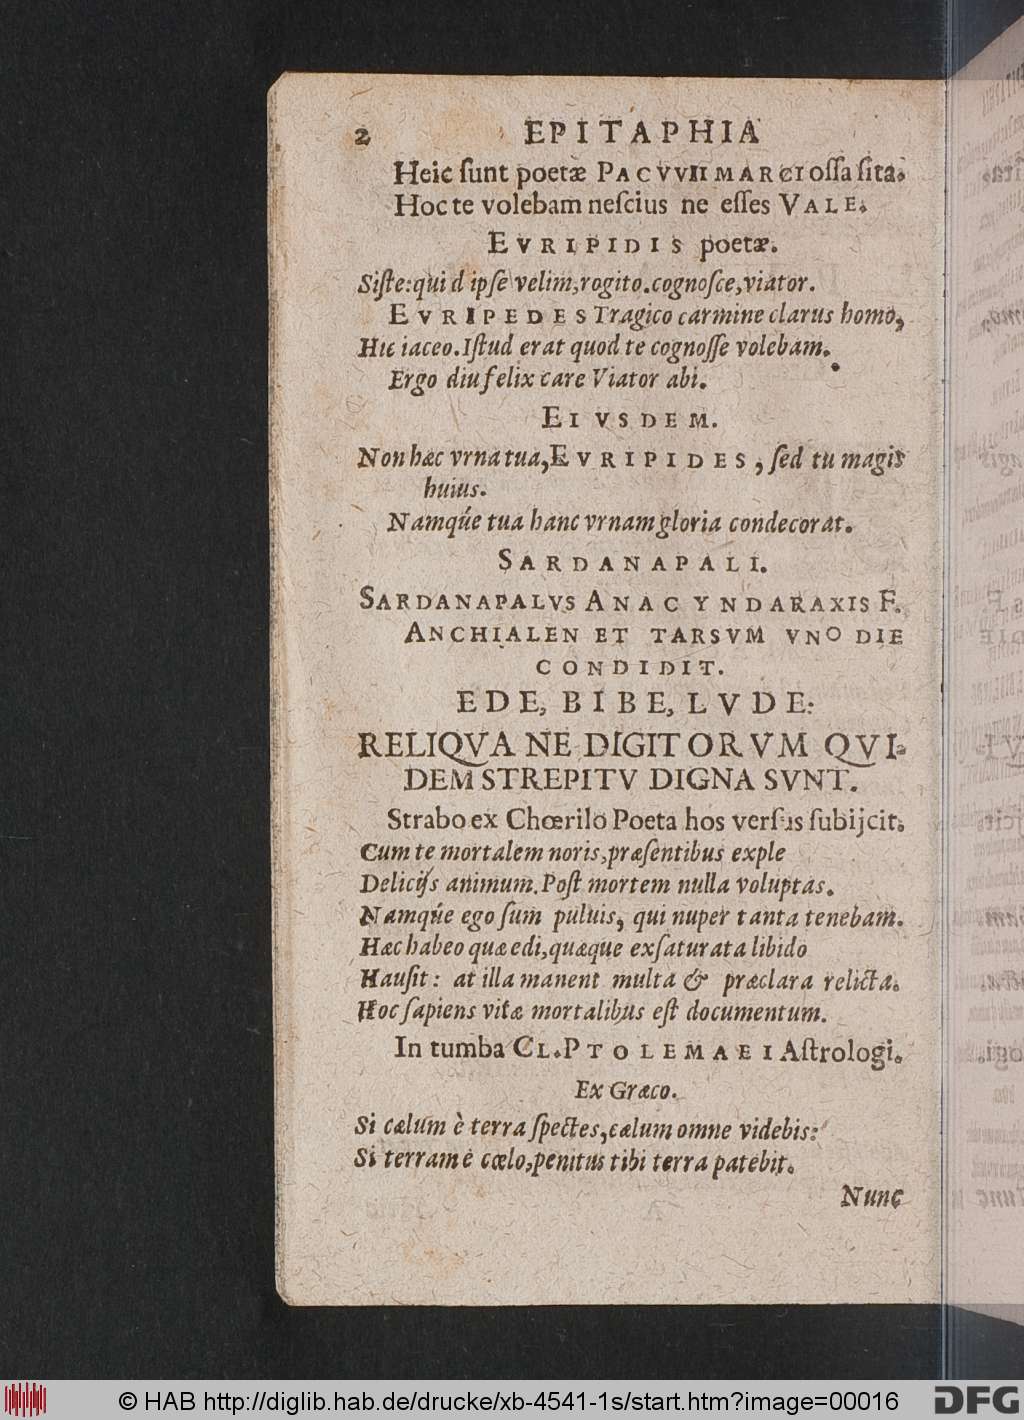 2 EPITAPHIA
Heic sunt poetæ PACVVII MARCI ossa sita.
Hoc te volebam nescius ne esses VALE.
EVRIPIDIS poetæ.
Siste: quid ipse velim, rogito. cognosce, viator.
EVRIPEDES Tragico carmine clarus homo,
Hic iaceo. Istud erat quod te cognosse volebam.
Ergo diu felix care Viator abi.
EIVSDEM.
Non hæc vrna tua, EVRIPIDES, sed tu magis
huius.
Namq́ue tua hanc vrnam gloria condecorat.
SARDANAPALI.
SARDANAPALVS ANACYNDARAXIS F.
ANCHIALEN ET TARSVM VNO DIE
CONDIDIT.
EDE, BIBE, LVDE:
RELIQVA NE DIGITORVM QVI-
DEM STREPITV DIGNA SVNT.
Strabo ex Chœrilo Poeta hos versus subijcit.
Cum te mortalem noris, præsentibus exple
Delicijs animum. Post mortem nulla voluptas.
Namq́ue ego sum puluis, qui nuper tanta tenebam.
Hæc habeo quæ edi, quæque exsaturata libido
Hausit: at illa manent multa & præclara relicta.
Hoc sapiens vitæ mortalibus est documentum.
In tumba CL. PTOLEMAEI Astrologi.
Ex Græco.
Si cælum è terra spectes, cælum omne videbis:
Si terram è cœlo, penitus tibi terra patebit.
Nunc
© HAB http://diglib.hab.de/drucke/xb-4541-1s/start.htm?image=00016
DFG